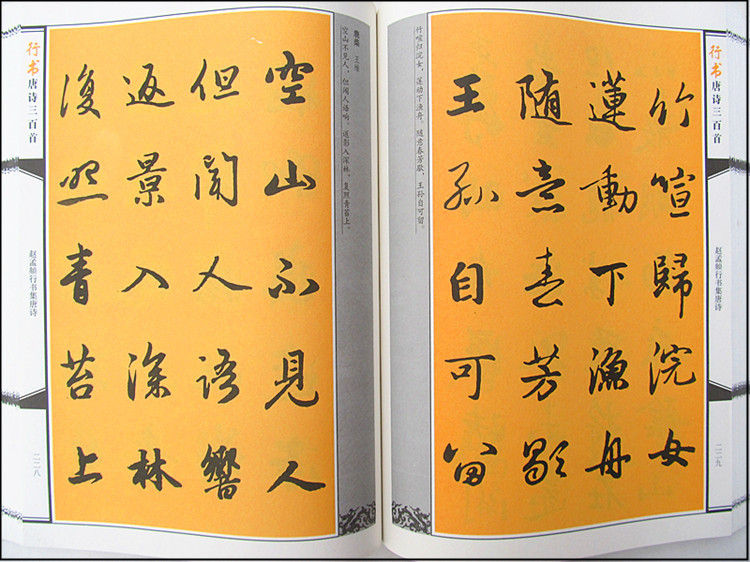 行书唐诗三百首
赵孟頫行书集唐诗
二二八
鹿柴 王维
空山不见人，但闻人语响。返影入深林，复照青苔上。
空山不見人
但聞人語響
返景入深林
復照青苔上
行书唐诗三百首
赵孟頫行书集唐诗
二二九
竹喧归浣女，莲动下渔舟。随意春芳歇，王孙自可留。
竹喧歸浣女
蓮動下漁舟
随意春芳歇
王孫自可留